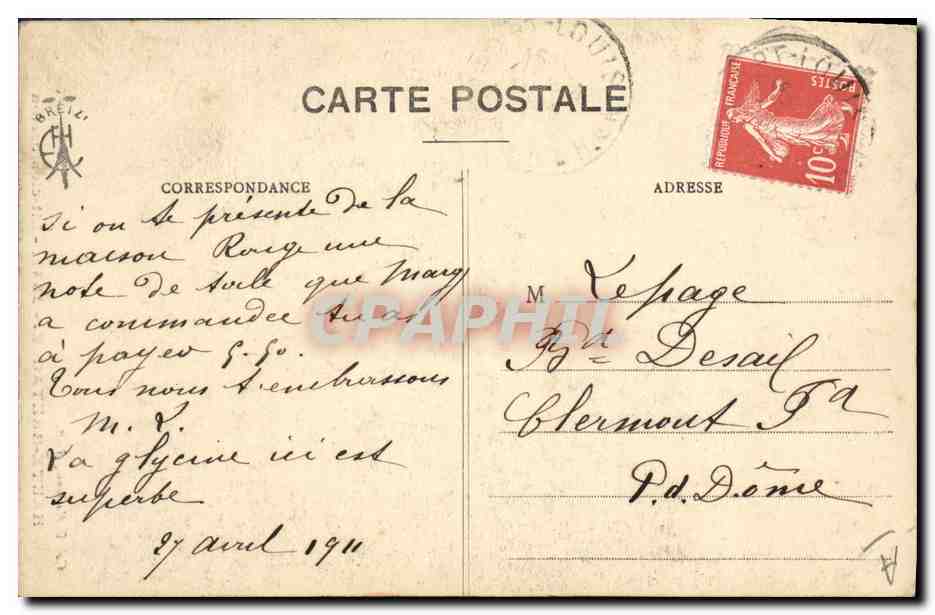 CARTE POSTALE
CORRESPONDANCE
si on te présente de la
maison Rouge une
note de toile que Marg
a commandée tu as
à payer 5.50.
Tous nous t'embrassons
M. L.
La glycine ici est
superbe
27 avril 1911
ADRESSE
M Lepage
Bd Desaix
Clermont Fd
P. d. Dôme
REPUBLIQUE FRANÇAISE
POSTES
10c
CPAPHIL